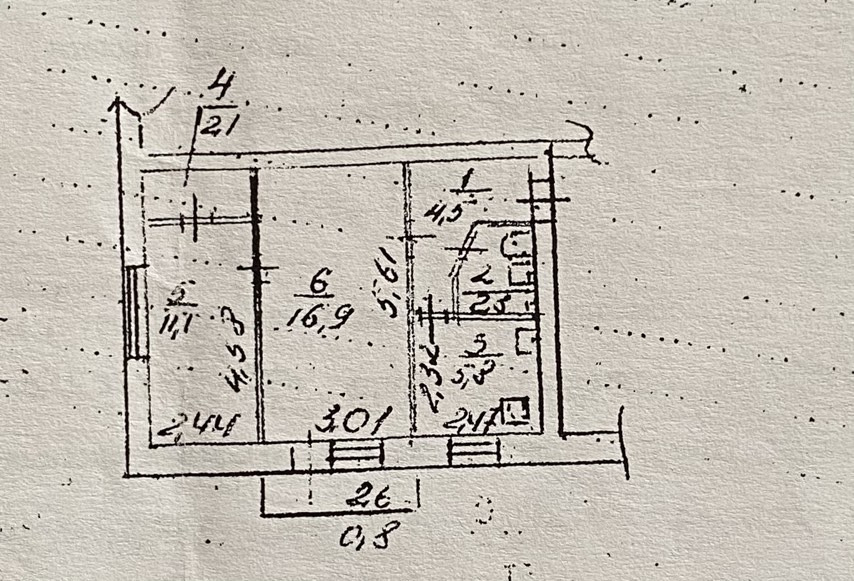 4
2,1
1
4,5
5
11,1
4,58
2,44
6
16,9
5,61
3,01
2
2,3
3
5,8
2,32
2,47
2,6
0,8